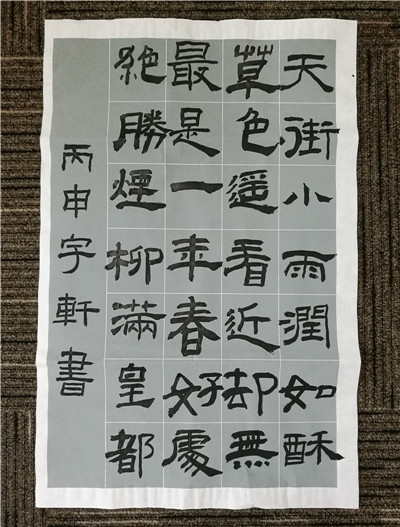 天街小雨潤如酥
草色遥看近却無
最是一年春好處
絶勝煙柳滿皇都
丙申字軒書